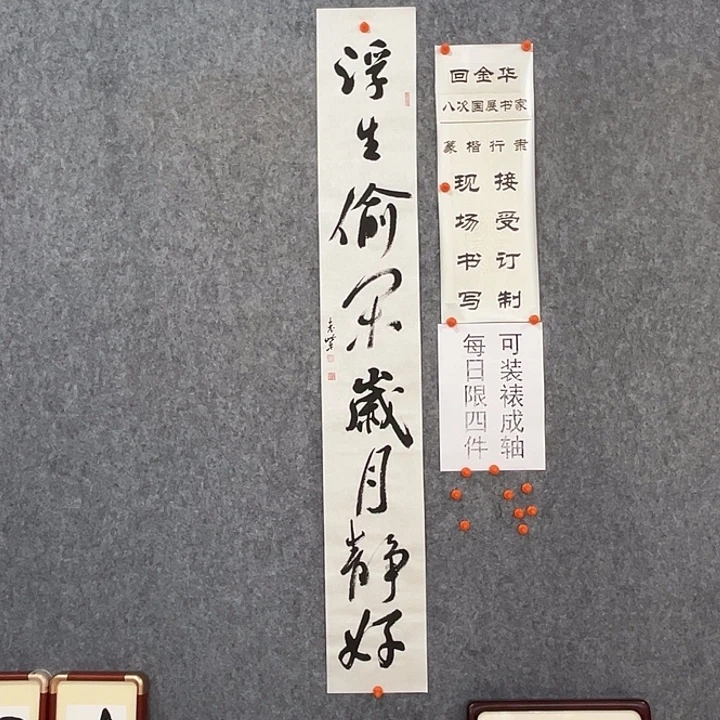 浮生偷闲歲月静好
回金华
八次国展书家
篆楷行隶
接受订制
现场书写
可装裱成轴
每日限四件